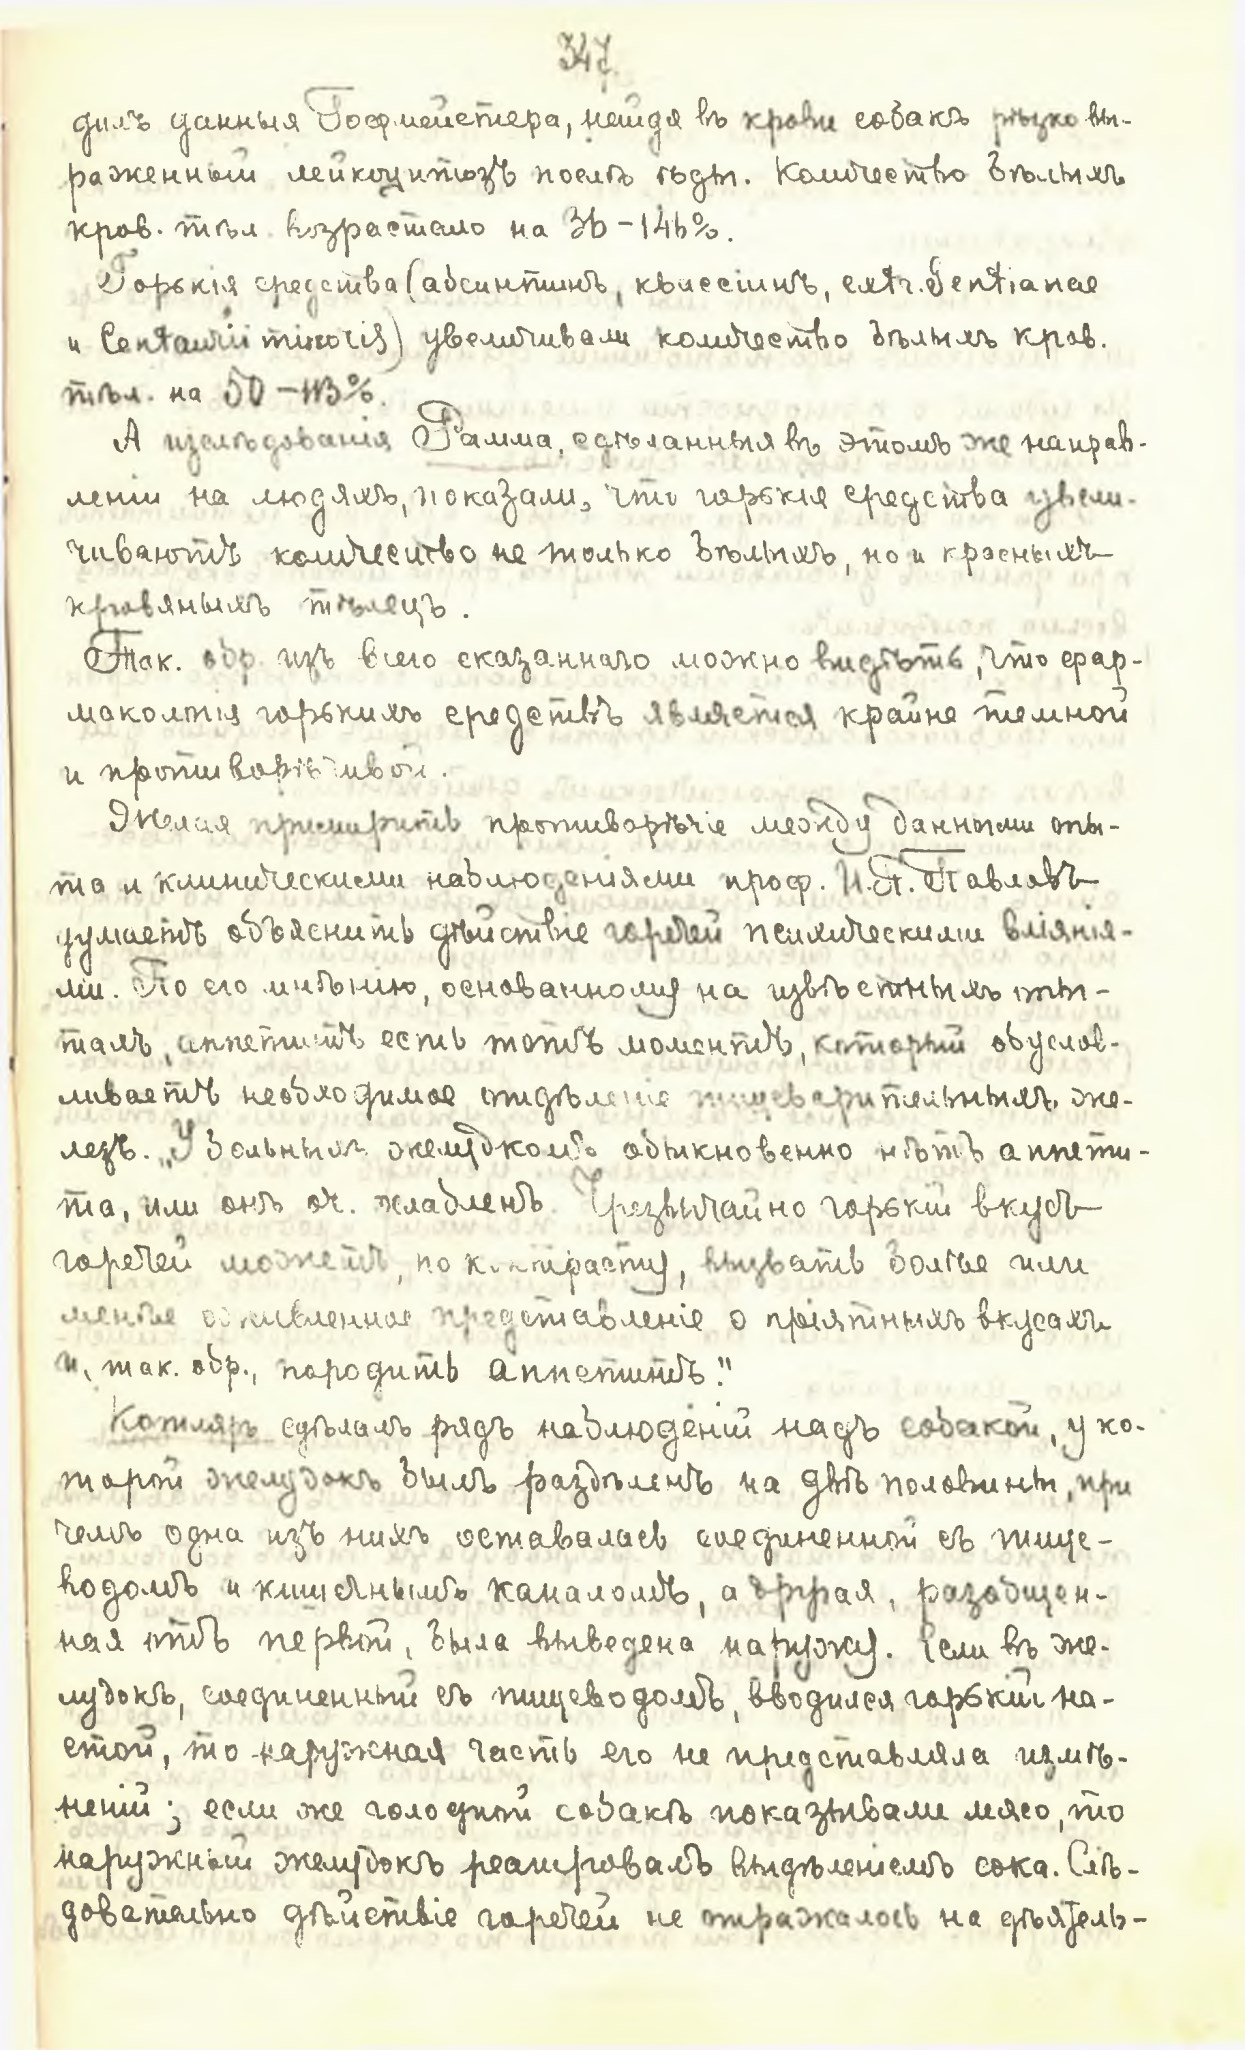 347.
дилъ данныя Гофмейстера, найдя въ крови собакъ рѣзко вы-
раженный лейкоцитозъ послѣ ѣды. Количество бѣлыхъ
кров. тѣл. возрастало на 36-146%.
Горькія средства (абсинтинъ, квассіинъ, extr. Gentianae
и Centaurii minoris) увеличивали количество бѣлыхъ кров.
тѣл. на 50-113%.
А изслѣдованія Рамма, сдѣланныя въ этомъ же направ-
леніи на людяхъ, показали, что горькія средства увели-
чиваютъ количество не только бѣлыхъ, но и красныхъ
кровяныхъ тѣлецъ.
Так. обр. изъ всего сказаннаго можно видѣть, что фар-
макологія горькихъ средствъ является крайне темной
и противорѣчивой.
Желая примирить противорѣчіе между данными опы-
та и клиническими наблюденіями проф. И. П. Павловъ
думаетъ объяснить дѣйствіе горечей психическими вліянія-
ми. По его мнѣнію, основанному на извѣстныхъ опы-
тахъ, аппетитъ есть тотъ моментъ, который обуслов-
ливаетъ необходимое отдѣленіе пищеварительныхъ же-
лезъ. „У больныхъ желудкомъ обыкновенно нѣтъ аппети-
та, или онъ оч. слабленъ. Чрезвычайно горькій вкусъ
горечей можетъ, по контрасту, вызвать болѣе или
менѣе оживленное представленіе о пріятныхъ вкусахъ
и, так. обр., породить аппетитъ."
Котляръ сдѣлалъ рядъ наблюденій надъ собакой, у ко-
торой желудокъ былъ раздѣленъ на двѣ половины, при
чемъ одна изъ нихъ оставалась соединенной съ пище-
водомъ и кишечнымъ каналомъ, а другая, разобщен-
ная отъ первой, была выведена наружу. Если въ же-
лудокъ, соединенный съ пищеводомъ, вводился горькій на-
стой, то наружная часть его не представляла измѣ-
неній; если же голодной собакѣ показывали мясо, то
наружный желудокъ реагировалъ выдѣленіемъ сока. Слѣ-
довательно дѣйствіе горечей не отражалось на дѣятель-